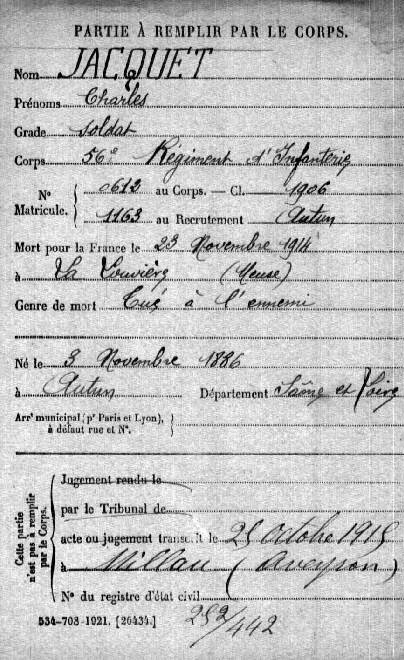 PARTIE À REMPLIR PAR LE CORPS.
Nom JACQUET
Prénoms Charles
Grade soldat
Corps 56e Régiment d'Infanterie
No Matricule. 0612 au Corps. — Cl. 1906
1163 au Recrutement Autun
Mort pour la France le 23 Novembre 1914
à La Louvière (Meuse)
Genre de mort Tué à l'ennemi
Né le 3 Novembre 1886
à Autun Département Saône et Loire
Arrt municipal (pr Paris et Lyon), à défaut rue et No.
Cette partie n'est pas à remplir par le Corps.
Jugement rendu le
par le Tribunal de
acte ou jugement transcrit le 25 octobre 1915
à Millau (Aveyron)
No du registre d'état civil
252/442
534-708-1921. [26434.]